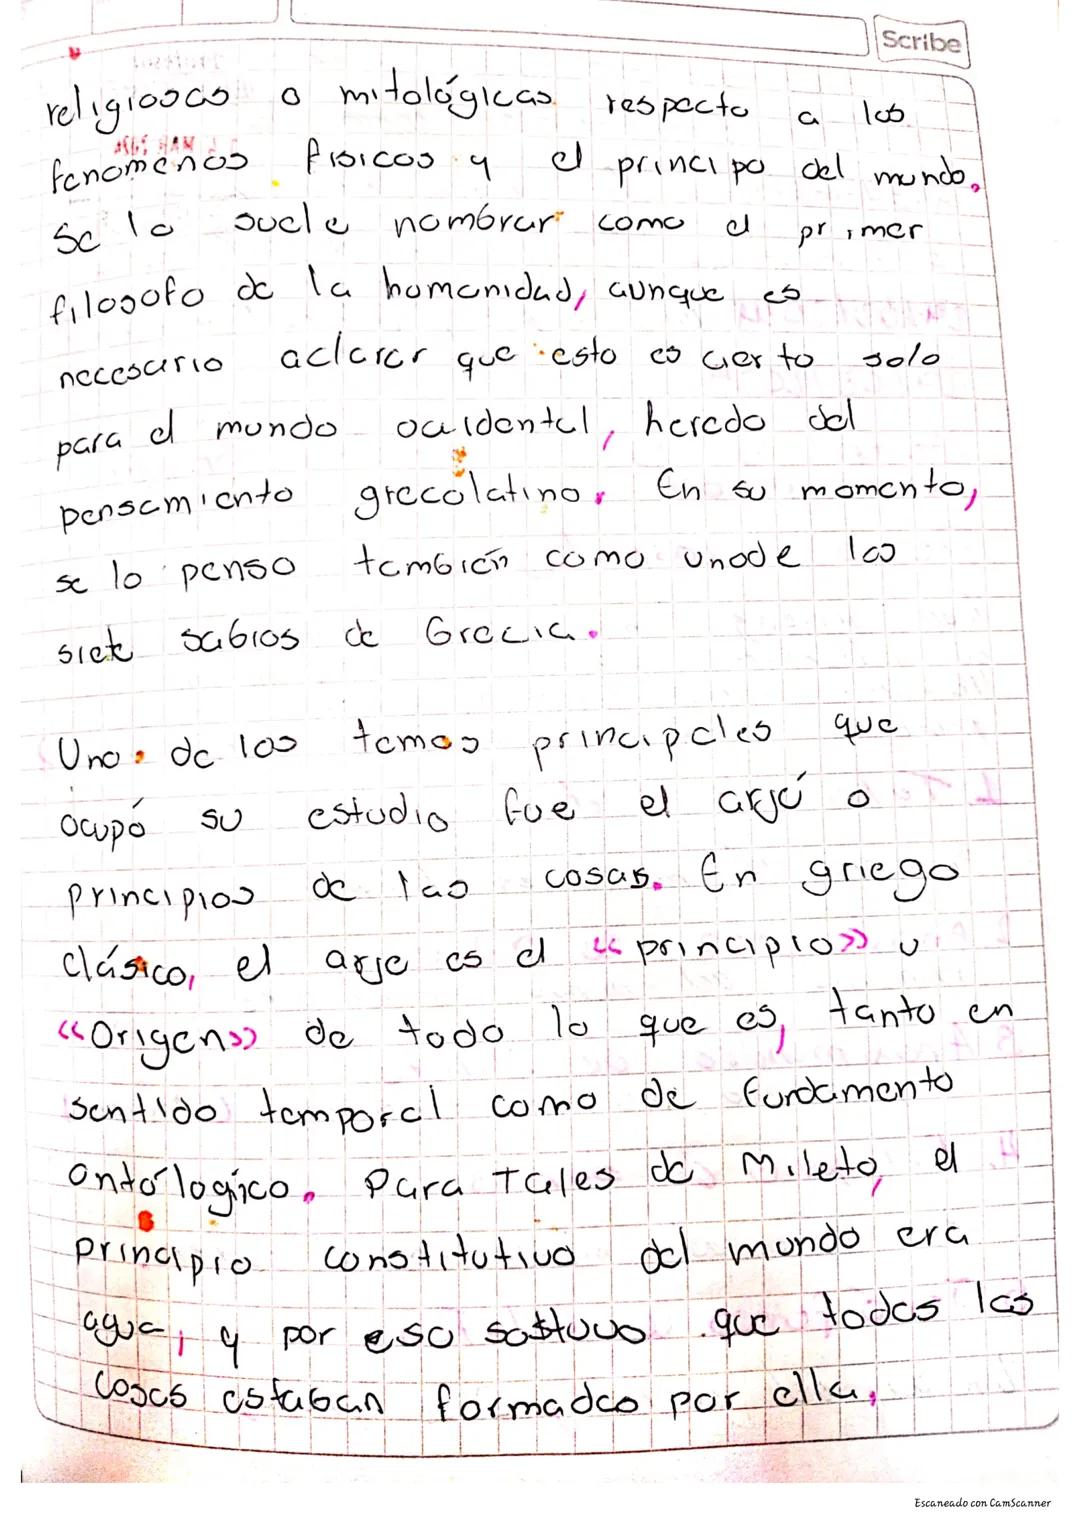 Scribe
religiosas o mitológicas respecto a los
fenomenos fisicos y el principo del mundo,
Se lo suele nombrar como el primer
filosofo de la humanidad, aunque es
necesario aclarar que esto es cierto solo
para el mundo occidental, heredo del
pensamiento grecolatino. En su momento,
se lo penso también como unode los
siete sabios de Grecia.
Uno de los temas principales que
ocupó su estudio fue el arjé o
principios de las cosas. En griego
clásico, el arje es el «principio» u
«Origen» de todo lo que es, tanto en
sentido temporal como de fundamento
ontólogico. Para Tales de Mileto, el
principio constitutivo del mundo era
agua, y por eso sostuvo que todas las
cosas estaban formadas por ella,
Escaneado con CamScanner